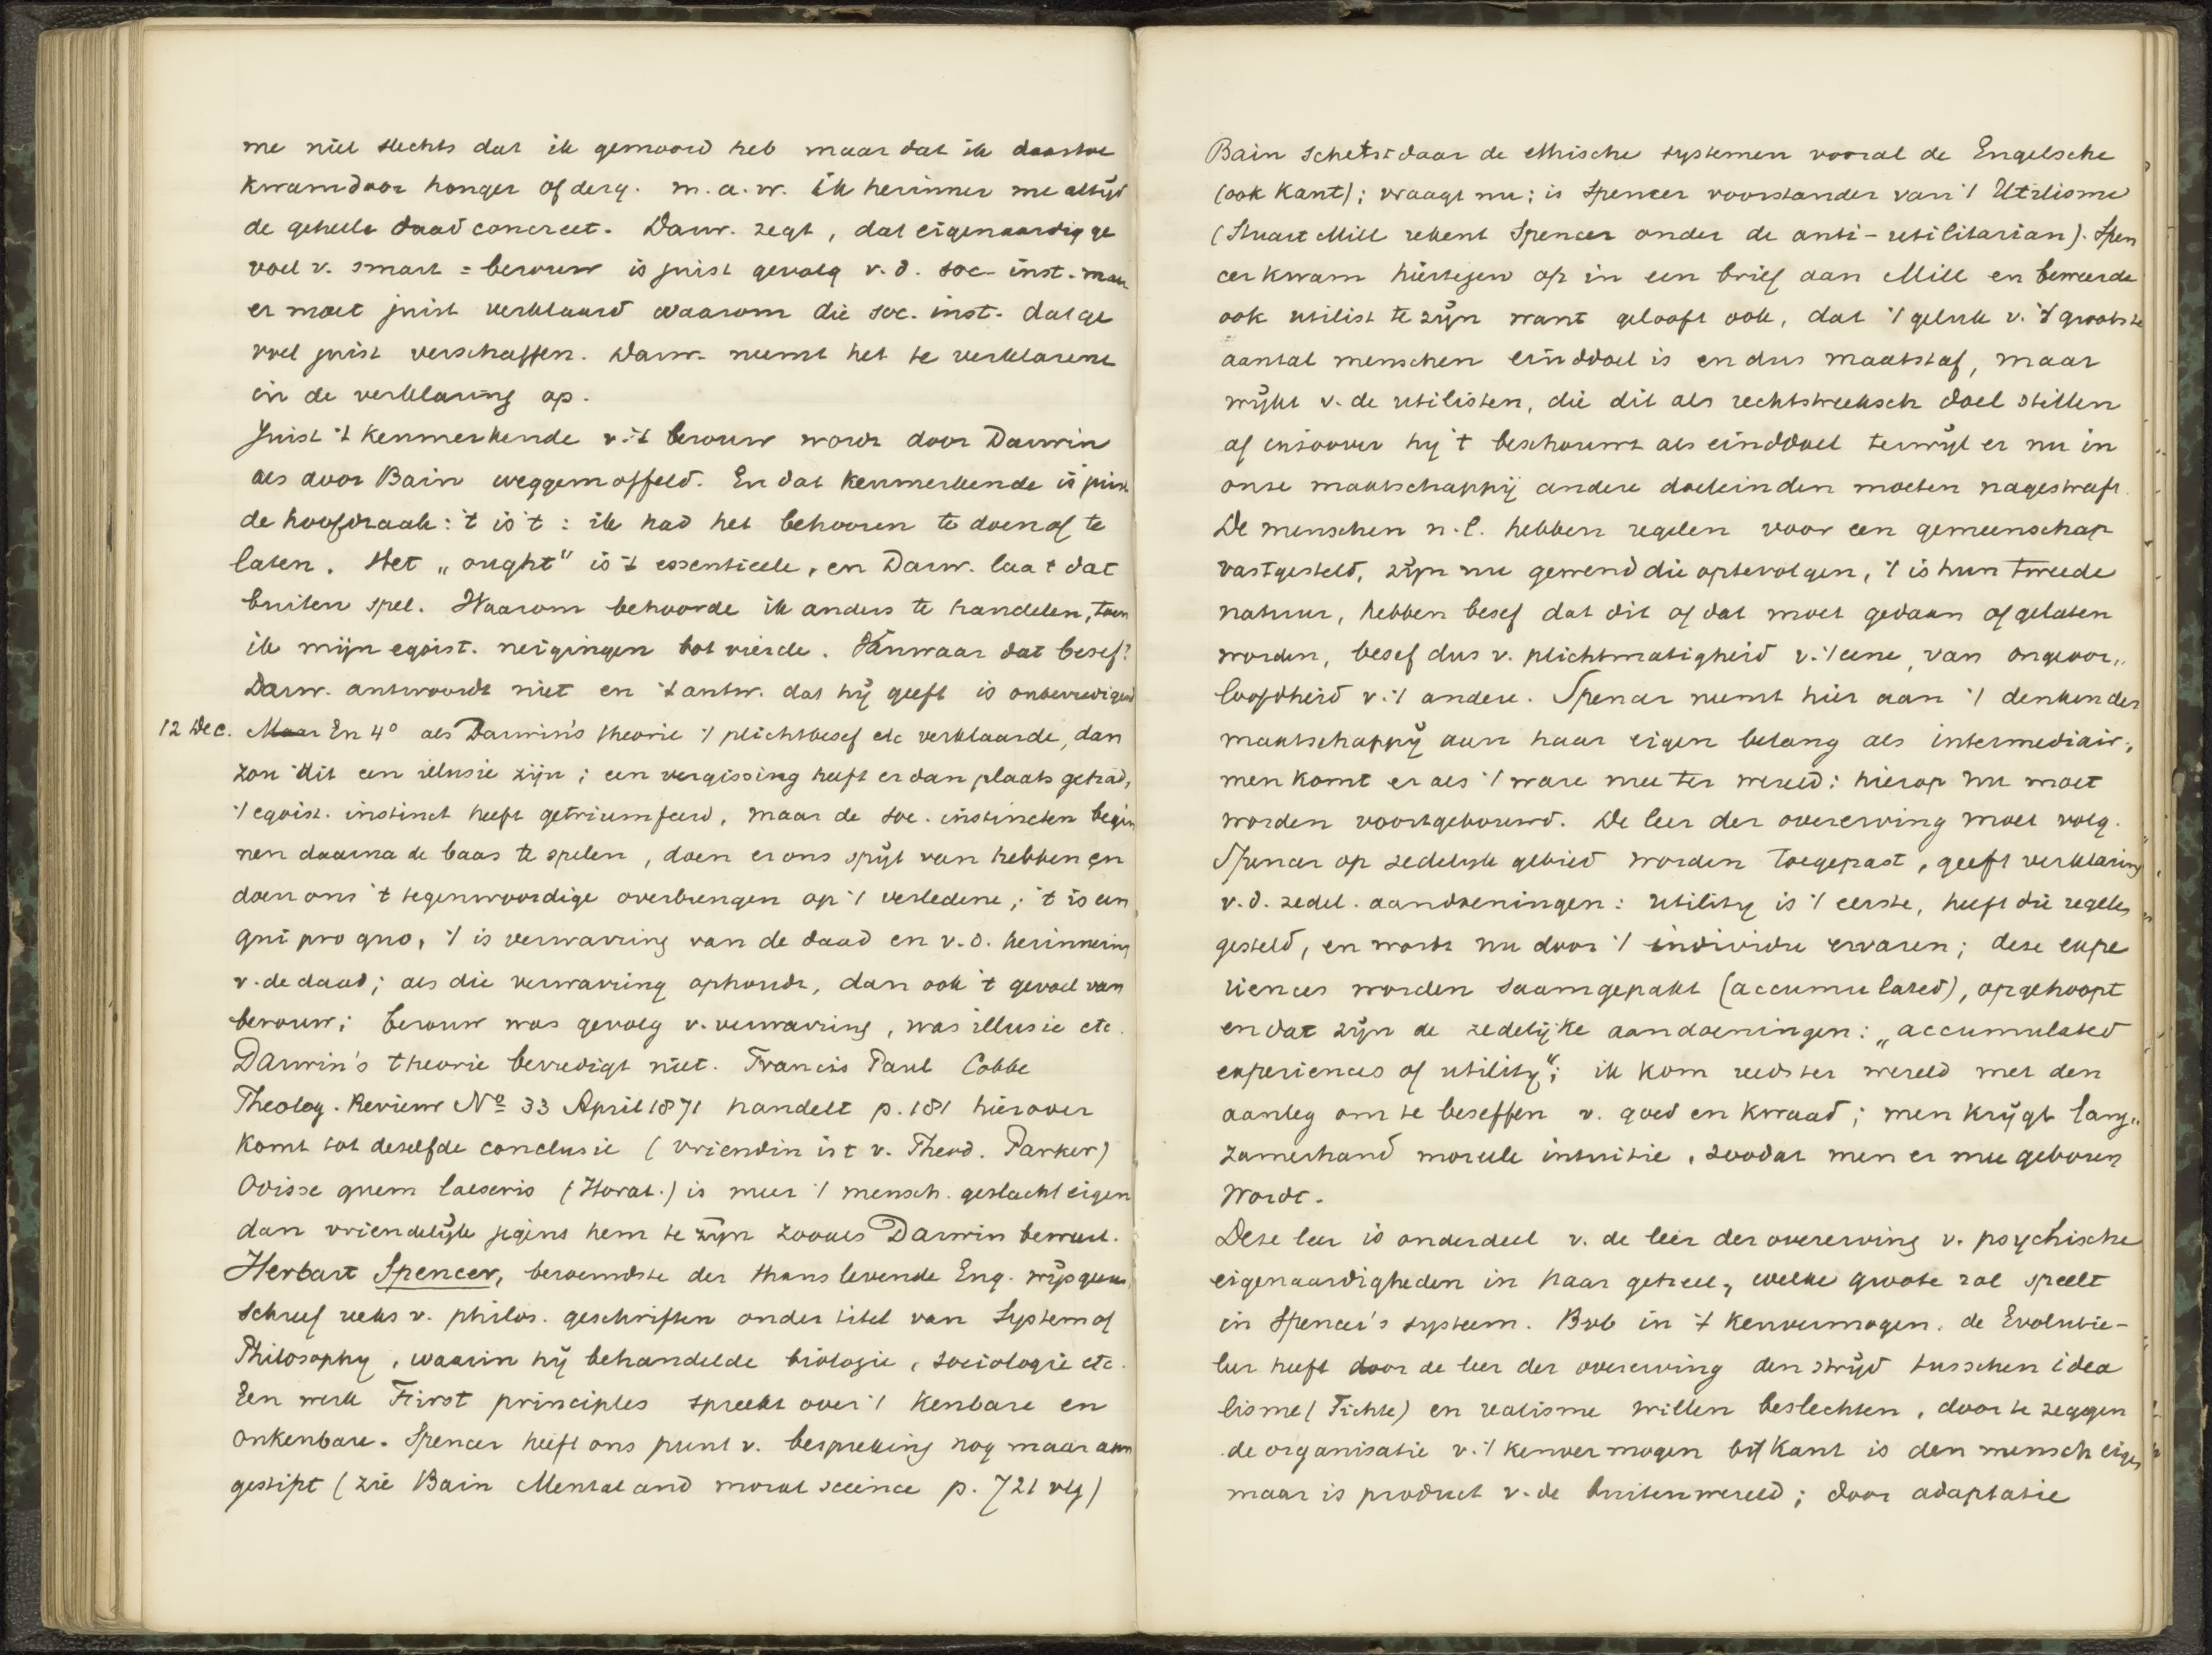 me niet slechts dat ik gemoord heb maar dat ik daartoe
kwam door honger of derg. m.a.w. ik herinner me altijd
de geheele daad concreet. Darw. zegt, dat eigenaardig ge
voel v. smart = berouw is juist gevolg v.d. soc. inst. maar
er moet juist verklaard waarom die soc. inst. dat ge
voel juist verschaffen. Darw. neemt het te verklarene
in de verklaring op.
Juist 't kenmerkende v. 't berouw wordt door Darwin
als door Bain weggemoffeld. En dat kenmerkende is juist
de hoofdzaak: 't is 't: ik had het behooren te doen of te
laten. Het „ought" is 't essentieele, en Darw. laat dat
buiten spel. Waarom behoorde ik anders te handelen, toen
ik mijn egoist. neigingen bot vierde. Vanwaar dat besef?
Darw. antwoordt niet en 't antw. dat hij geeft is onbevredigend
12 Dec. Maar En 4° als Darwin's theorie 't plichtbesef etc verklaarde, dan
zou dit een illusie zijn; een vergissing heeft er dan plaats gehad,
't egoist. instinct heeft getriumfeerd, maar de soc. instincten begin
nen daarna de baas te spelen, doen er ons spijt van hebben en
doen ons 't tegenwoordige overbrengen op 't verledene; 't is een
qui pro quo, 't is verwarring van de daad en v.d. herinnering
v. de daad; als die verwarring ophoudt, dan ook 't gevoel van
berouw; berouw was gevolg v. verwarring, was illusie etc.
Darwin's theorie bevredigt niet. Francis Paul Cobbe
Theolog. Review No 33 April 1871 handelt p. 181 hierover
komt tot dezelfde conclusie (vriendin is t v. Theod. Parker)
Odisse quem laeseris (Horat.) is meer 't mensch. geslacht eigen
dan vriendelijk jegens hem te zijn zooals Darwin beweert.
Herbart Spencer, beroemdste der thans levende Eng. wijsgeeren,
schreef reeks v. philos. geschriften onder titel van System of
Philosophy, waarin hij behandelde biologie, sociologie etc.
Een werk First principles spreekt over 't kenbare en
onkenbare. Spencer heeft ons punt v. bespreking nog maar aan
gestipt (zie Bain Mental and moral science p. 721 vlg)
Bain schetst daar de ethische systemen vooral de Engelsche
(ook Kant); vraagt nu: is Spencer voorstander van 't Utilisme
(Stuart Mill rekent Spencer onder de anti-utilitarian). Spen
cer kwam hiertegen op in een brief aan Mill en beweerde
ook utilist te zijn want gelooft ook, dat 't geluk v. 't grootste
aantal menschen einddoel is en dus maatstaf, maar
wijkt v. de utilisten, die dit als rechtstreeksch doel stellen
af inzoover hij 't beschouwt als einddoel terwijl er nu in
onze maatschappij andere doeleinden moeten nagestreeft.
De menschen n.l. hebben regelen voor een gemeenschap
vastgesteld, zijn nu gewend die optevolgen, 't is hun tweede
natuur, hebben besef dat dit of dat moet gedaan of gelaten
worden, besef dus v. plichtmatigheid v. 't eene, van ongeoor„
loofdheid v. 't andere. Spencer neemt hier aan 't denken der
maatschappij aan haar eigen belang als intermediair,
men komt er als 't ware mee ter wereld: hierop nu moet
worden voortgebouwd. De leer der overerving moet volg.
Spencer op zedelijk gebied worden toegepast, geeft verklaring
v.d. zedel. aandoeningen: utility is 't eerste, heeft die regels
gesteld, en wordt nu door 't individu ervaren; deze expe
riences worden saamgepakt (accumulated), opgehoopt
en dat zijn de zedelijke aandoeningen: „accumulated
experiences of utility"; ik kom reeds ter wereld met den
aanleg om te beseffen v. goed en kwaad; men krijgt lang„
zamerhand moreele intuitie, zoodat men er mee geboren
wordt.
Deze leer is onderdeel v. de leer der overerving v. psychische
eigenaardigheden in haar geheel, welke groote rol speelt
in Spencer's systeem. Bvb in 't kenvermogen. de Evolutie-
leer heeft door de leer der overerving den strijd tusschen idea
lisme (Fichte) en realisme willen beslechten, door te zeggen
de organisatie v. 't kenvermogen bij Kant is den mensch eigen
maar is product v. de buitenwereld; door adaptatie